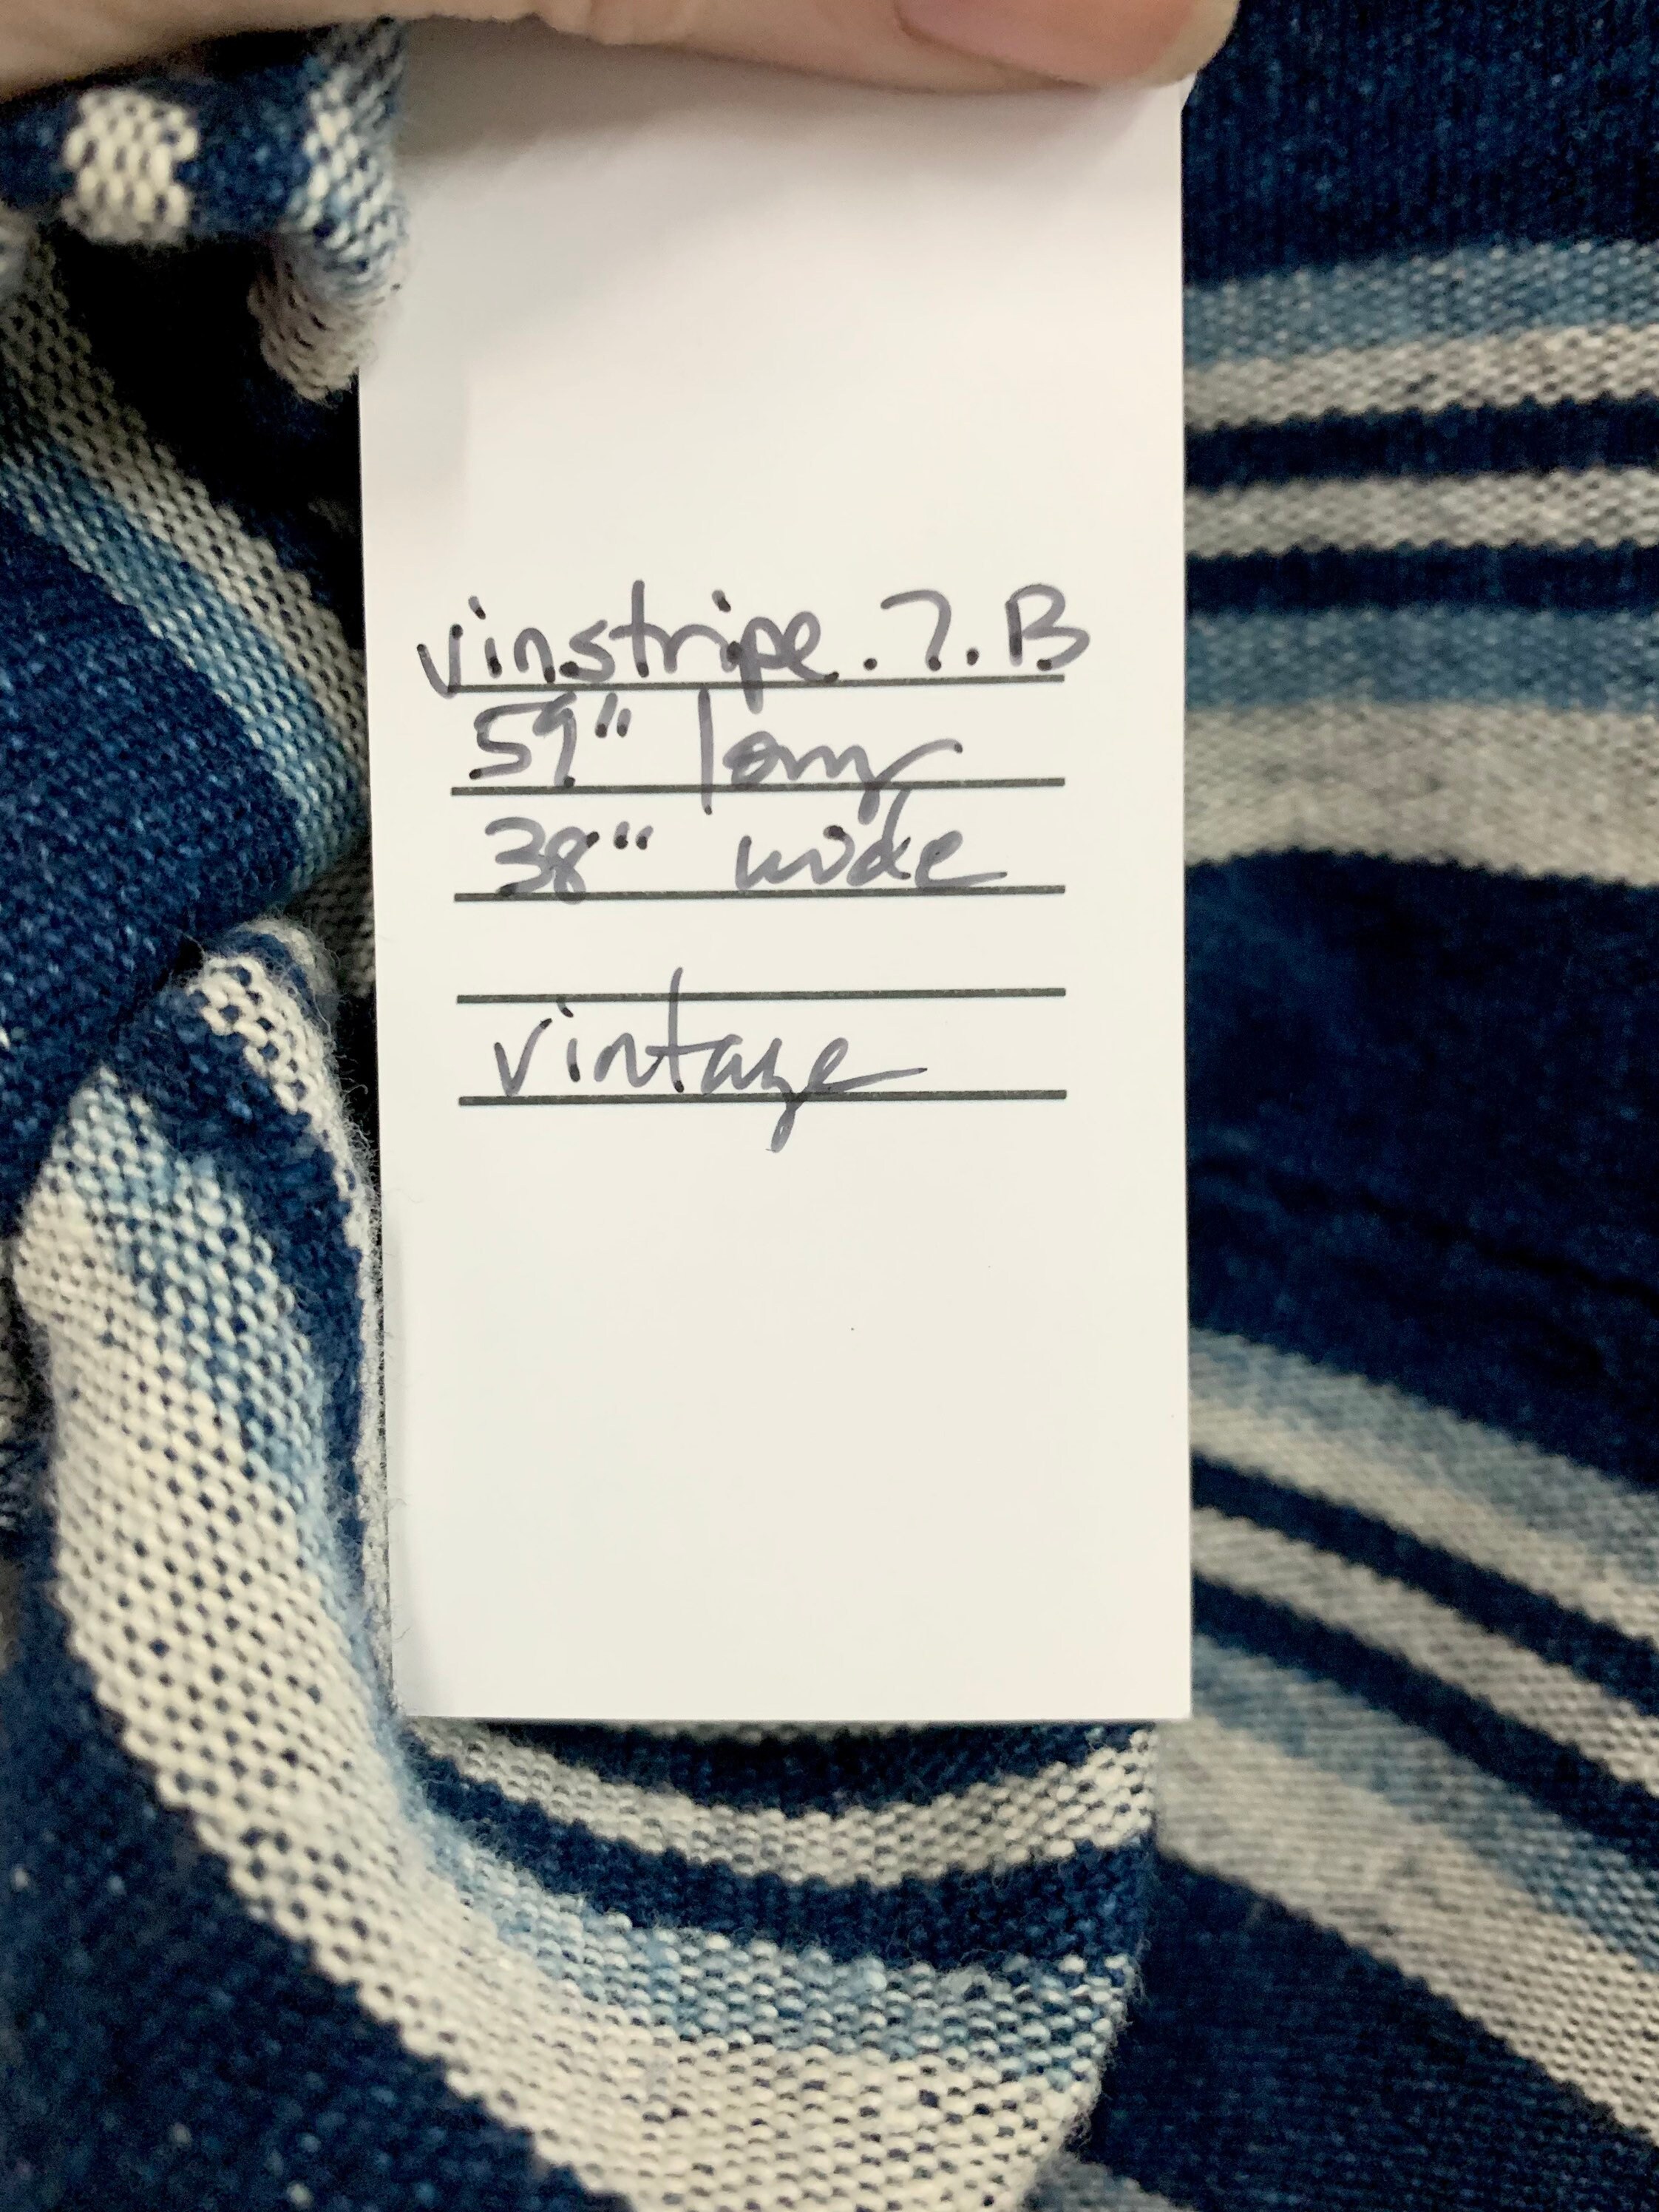 vinstripe.7.B
59" long
38" wide
vintage